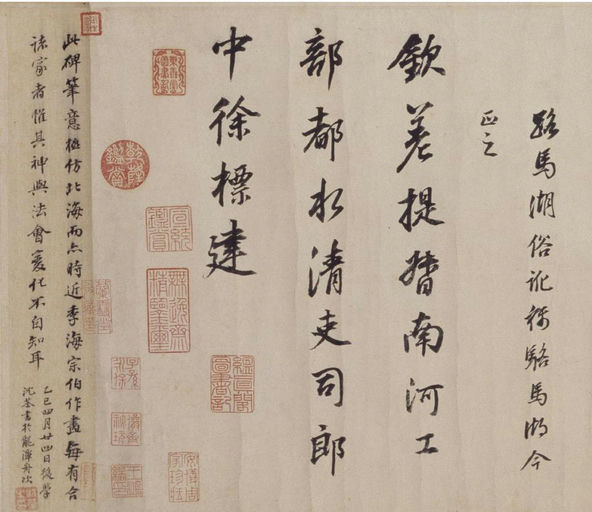 路馬湖俗訛稱駱馬湖今
正之
欽差提督南河工
部都水清吏司郎
中徐標建
乾隆鑑賞
無逸齋精鑒璽
此碑筆意極仿北海而亦時近季海宗伯作畫每有合
諸家者惟其神與法會變化不自知耳
乙巳四月廿四日後學
沈荃書於龍潭舟次